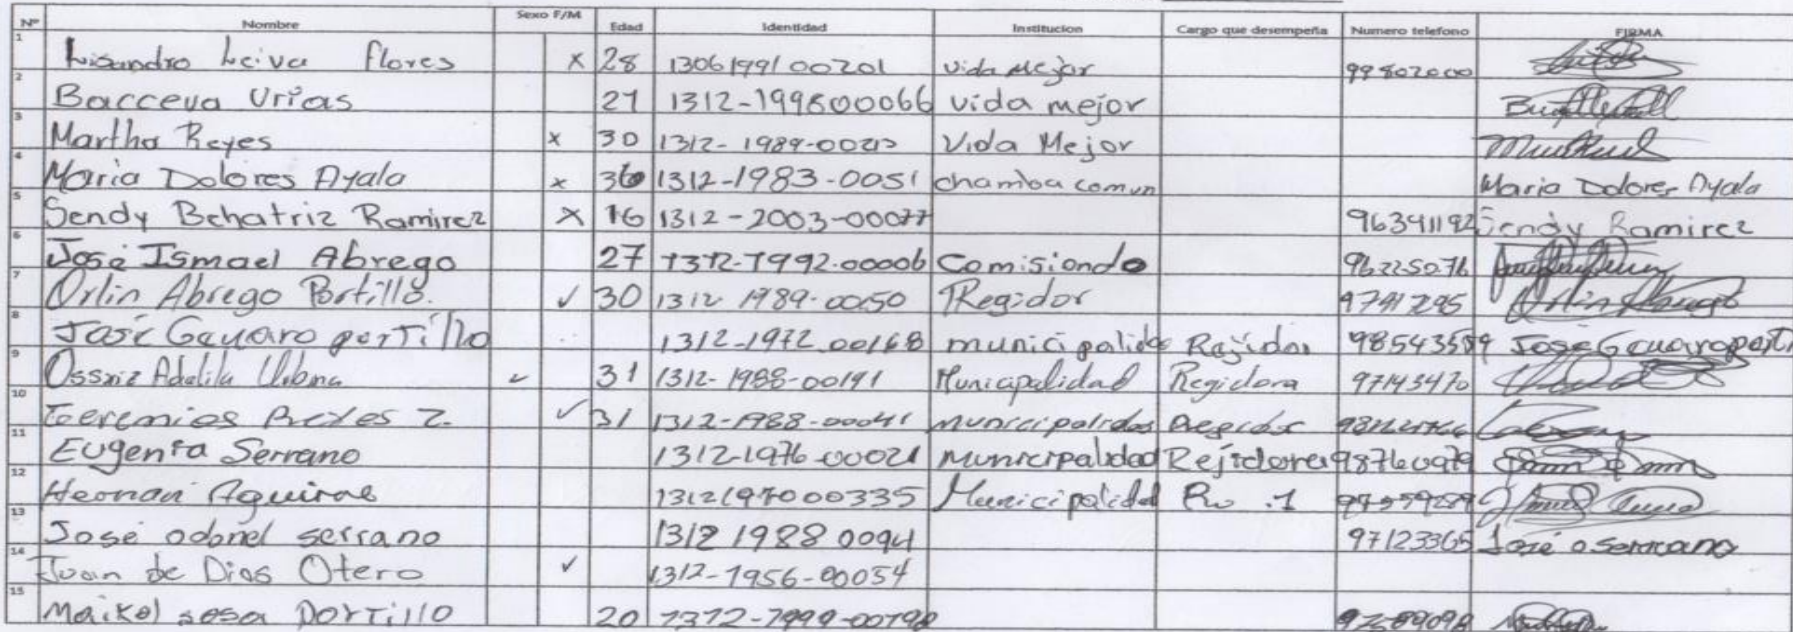 Nº Nombre Sexo F/M Edad Identidad Institucion Cargo que desempeña Numero telefono FIRMA
1 Lisandro Leiva flores x 28 1306199100201 vida Mejor 99802000
2 Bacceva Urias 21 1312-199800066 vida mejor
3 Martha Reyes x 30 1312-1989-00213 Vida Mejor
4 Maria Dolores Ayala x 36 1312-1983-0051 chamba comun Maria Dolores Ayala
5 Sendy Behatriz Ramirez x 16 1312-2003-00077 96391192 Sendy Ramirez
6 José Ismael Abrego 27 1312-1992-00006 Comisiondo 96225076
7 Orlin Abrego Portillo. ✓ 30 1312 1989-00150 Regidor 9791295
8 José Gauaro porTillo 1312-1972.00168 municipalida Rejidor 98543559
9 Adelila ✓ 31 1312-1988-00191 Municipalidad Regidora 97143470
10 Geremias Reyes Z. ✓ 31 1312-1988-00041 Municipalidad Regidor
11 Eugenia Serrano 1312-1976-00021 Municipalidad Rejidora 98760979
12 Hernan Aguirre 1312197000335 Municipalidad
13 José odonel serrano 1312 1988 0094 97123365 José o serrano
14 Juan de Dios Otero ✓ 1312-1956-00054
15 Maikol sosa PorTillo 20 1312-1999-00198